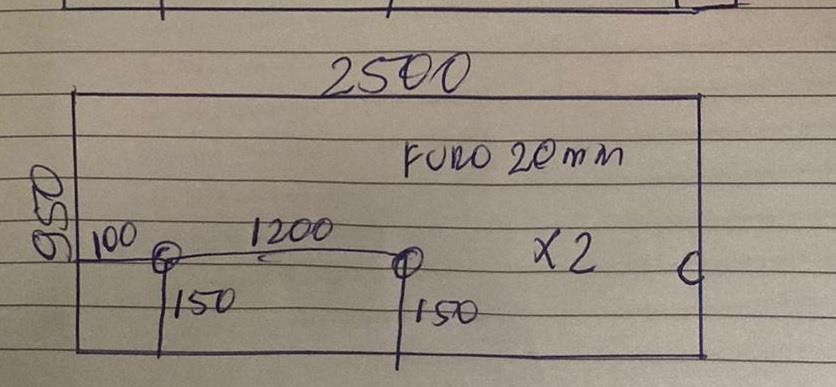 2500
FURO 20mm
950
100
1200
X2
150
150